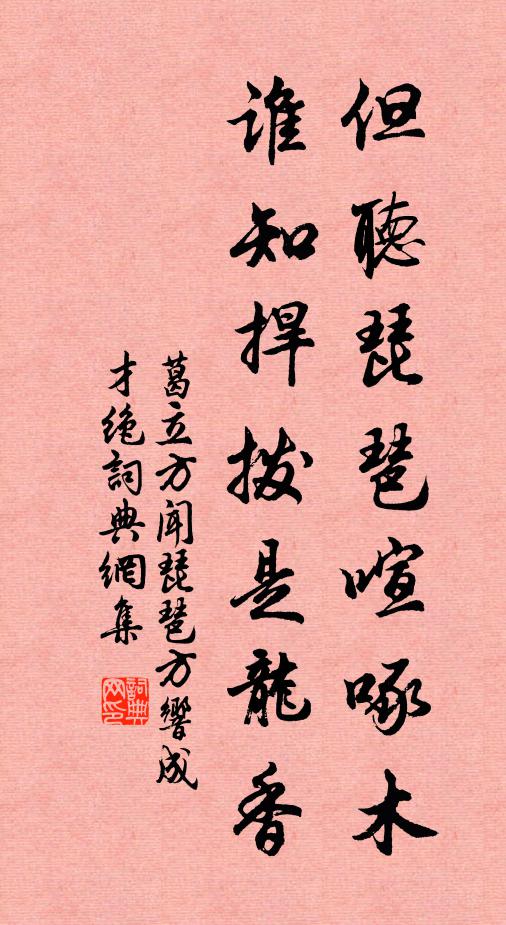 但聽琵琶喧啄木
誰知捍撥是龍香
葛立方聞琵琶方響成
才絶詞典網集
詞典
网印